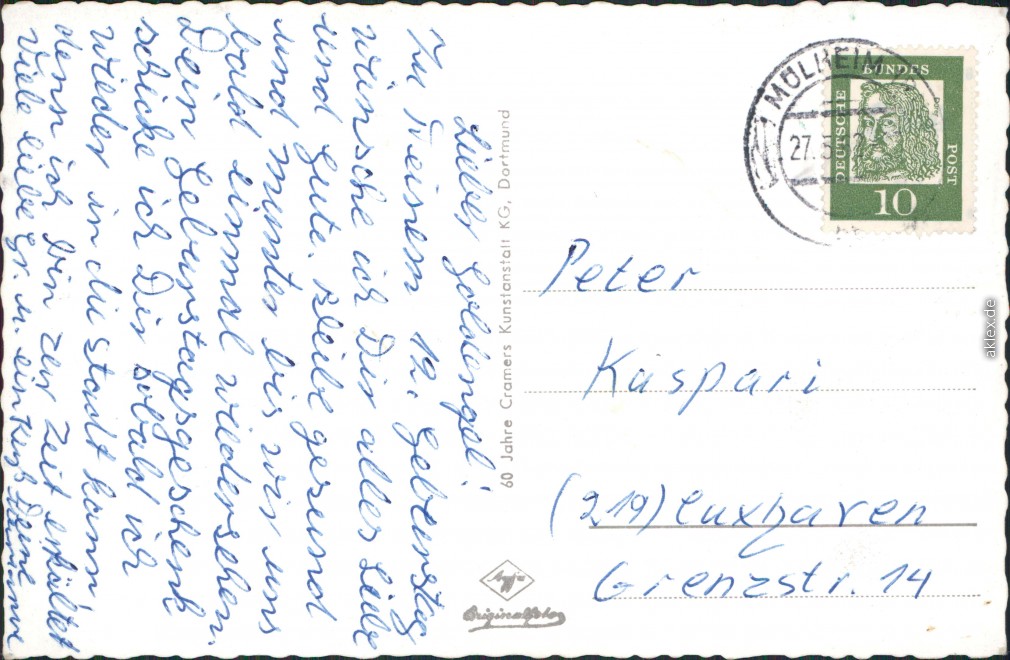 Lieber Goldengel!
Zu Deinem 12. Geburtstag
wünsche ich Dir alles Liebe
und Gute. Bleibe gesund
und munter bis wir uns
bald einmal wiedersehen.
Dein Geburstagsgeschenk
schicke ich Dir sobald ich
wieder in die Stadt kann
denn ich bin zur Zeit erkältet
Viele liebe Gr. u. ein Kuß Deine
60 Jahre Cramers Kunstanstalt KG, Dortmund
Agfa
Originalfoto
MÜLHEIM
27.5.
DEUTSCHE
BUNDES
POST
10
Peter
Kaspari
(219) Cuxhaven
Grenzstr. 14
aklex.de